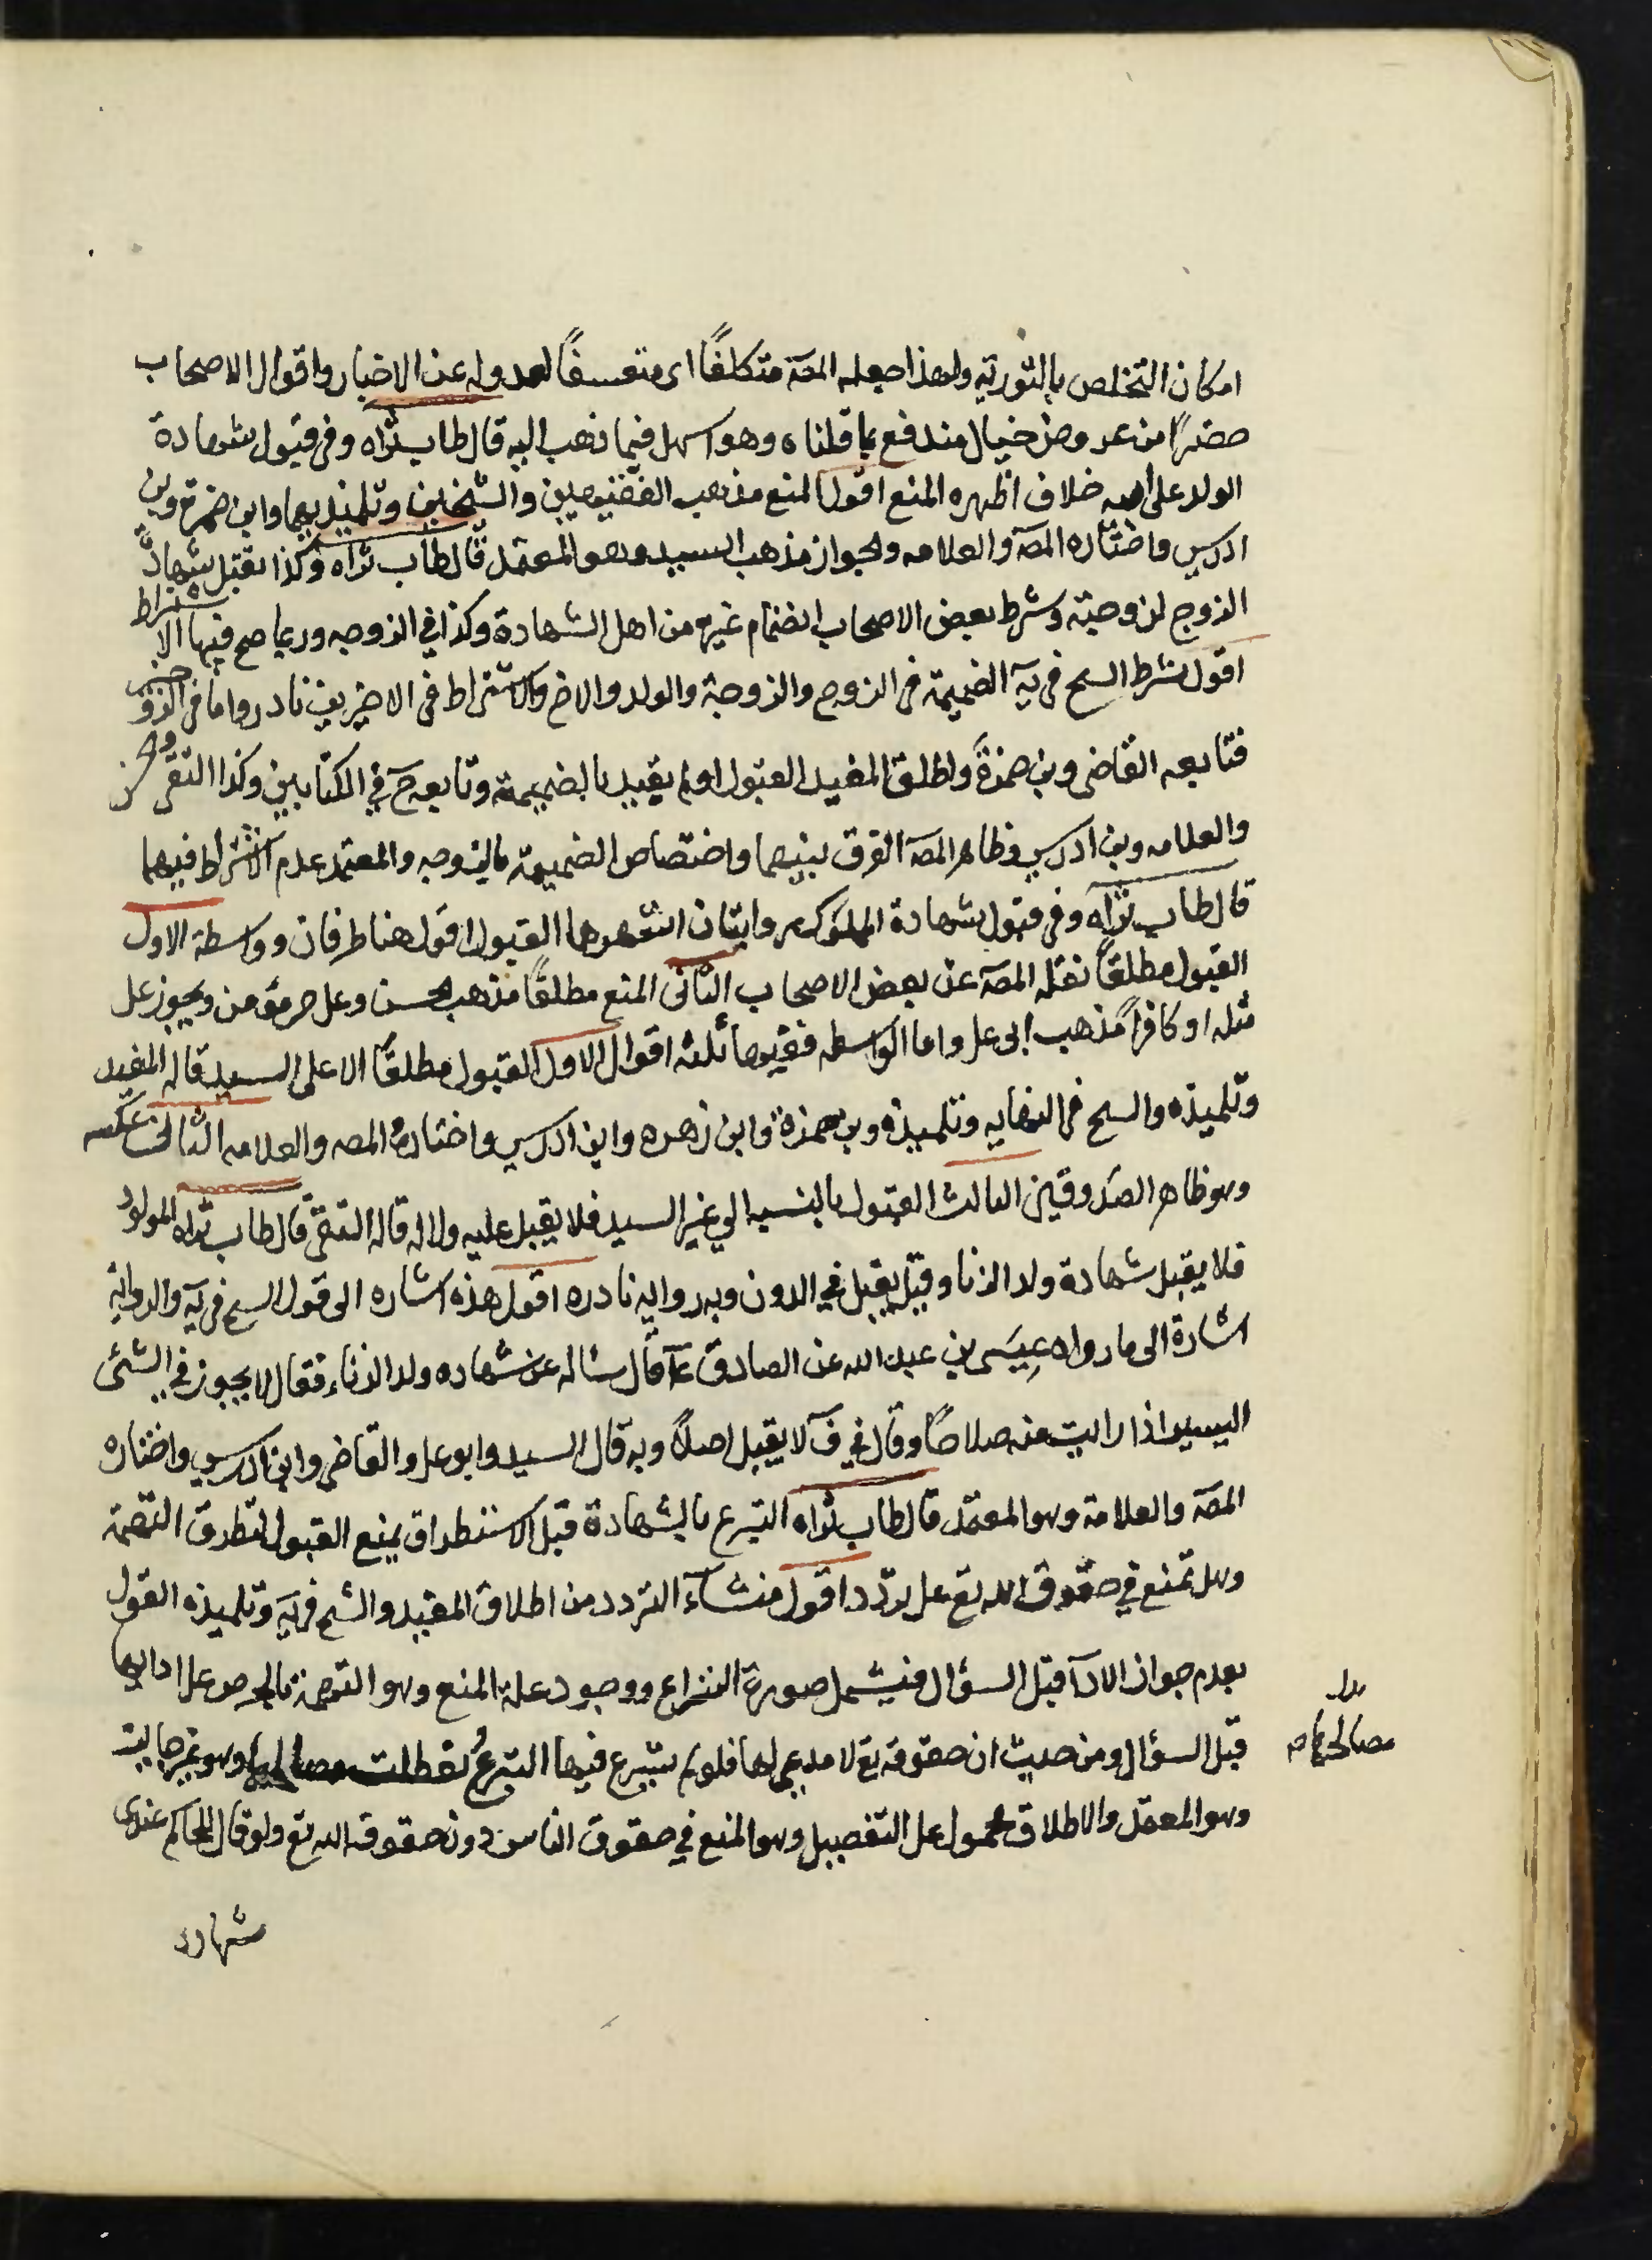 امكان التخلص بالتوريه ولهذا جعله المصَه متكلفًا اى متعسفًا لعدوله عن الاخبار واقوال الاصحاب
حضرًا من عروض خيال مندفع بما قلناه وهو اسهل فيما ذهب اليه قال طاب ثراه وفى قبول شهادة
الولد على ابيه خلاف اظهره المنع اقول المنع مذهب الفقيهين والشيخين وتلميذيهما وابن حمزة وبن
ادريس واختاره المصَه والعلامه والجواز مذهب السيد وهو المعتمد قال طاب ثراه وكذا تقبل شهادة
الزوج لزوجته وشرط بعض الاصحاب انضمام غيره من اهل الشهادة وكذا في الزوجه وربما صح فيها الاشتراط
اقول شرط الشيخ فى يَه الضميمة فى الزوج والزوجة والولد والاخ والاشتراط فى الاخيرين نادر واما فى الزوجين
فتابعه القاضى وبن حمزة واطلق المفيد القبول ولم يقيد بالضميمة وتابعه خَ في الكتابين وكذا التقى والحسن
والعلامه وبن ادريس وظاهر المصَه الفرق بينهما واختصاص الضميمة بالزوجه والمعتمد عدم الاشتراط فيهما
قال طاب ثراه وفى قبول شهادة المملوك روايتان اشهرهما القبول اقول هنا طرفان وواسطة الاول
القبول مطلقًا نقله المصَه عن بعض الاصحاب الثانى المنع مطلقًا مذهب الحسن وعلى حر مؤمن ويجوز على
مثله او كافرًا مذهب ابى على واما الواسطه ففيها ثلثه اقوال الاول القبول مطلقًا الا على السيد قاله المفيد
وتلميذه والشيخ فى النهايه وتلميذه وبن حمزة وابن زهره وابن ادريس واختاره المصه والعلامه الثانى عكسه
وهو ظاهر الصدوقين الثالث القبول بالنسبه الي غير السيد فلا يقبل عليه ولا له قاله التقى قال طاب ثراه المولود
فلا يقبل شهادة ولد الزنا وقيل يقبل في الدون وبه روايه نادره اقول هذه اشاره الى قول الشيخ فى يَه والروايه
اشارة الى ما رواه عيسى بن عبد الله عن الصادق عَ قال سئاله عن شهاده ولد الزناء فقال لا يجوز في الشئ
اليسير اذا رايت منه صلاحًا وقال في فَ لا يقبل اصلًا وبه قال السيد وابو على والقاضى وابن ادريس واختاره
المصَه والعلامة وهو المعتمد قال طاب ثراه التبرع بالشهادة قبل الاستنطاق يمنع القبول لتطرق التهمة
وهل تمنع في حقوق الله تع على تردّد اقول منشاء التردد من اطلاق المفيد والشيخ فى يَه وتلميذه القول
بعدم جواز الادآ قبل السؤال فيشمل صورة النزاع ووجود علة المنع وهو التهمة بالحرص على ادائها
قبل السؤال ومن حيث ان حقوقه تع لا مدعى لها فلو لم يتبرع فيها التبرع تعطلت مصالحها وهو غير جايز
وهو المعتمد والاطلاق محمول على التفصيل وهو المنع في حقوق الناس دون حقوق الله تع ولو قال للحاكم عندى
شهادة
بدل
مصالحها صه